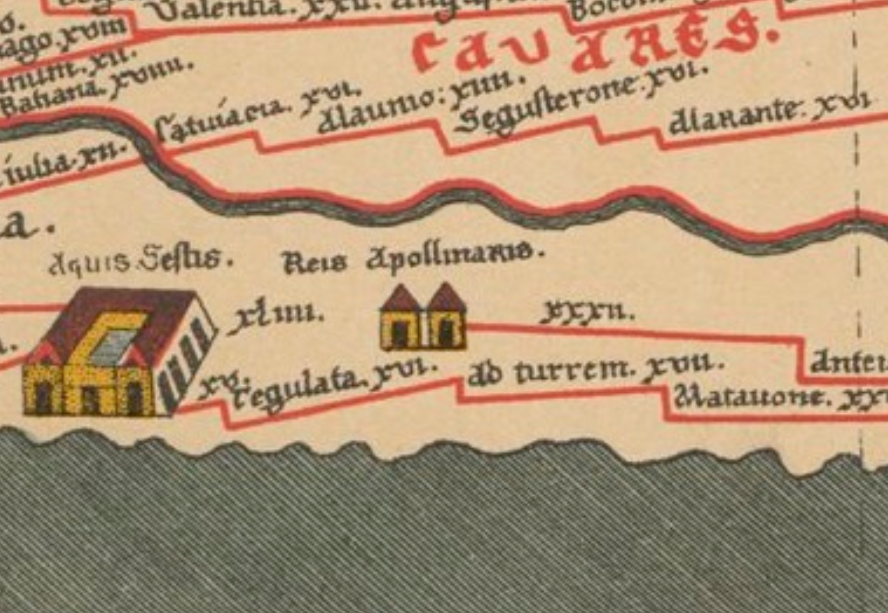 Valentia. xxii.
Bocon
ago. xviii
CAVARES.
inum. xii.
Bahana. xviiii.
Catuiacia. xvi.
Alaunio: xiiii.
Segusterone. xvi.
Alarante. xvi
iulia. xii.
a.
Aquis Sestis.
Reis Apollinaris.
xliiii.
xxxii.
xv.
tegulata. xvi.
ad turrem. xvii.
Matauone. xx
Antei